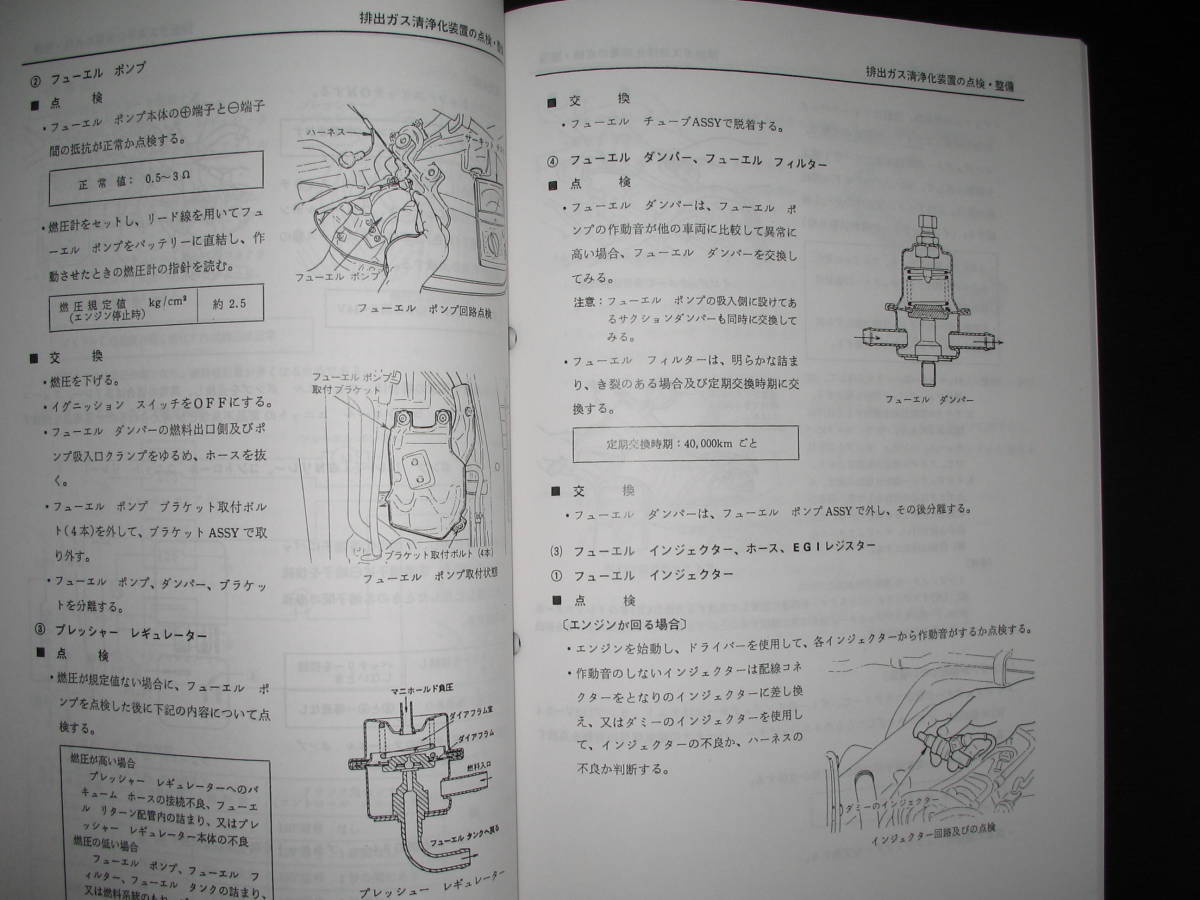 排出ガス清浄化装置の点検・整
② フューエル ポンプ
■ 点 検
・フューエル ポンプ本体の⊕端子と⊖端子
間の抵抗が正常か点検する。
正 常 値： 0.5～3Ω
・燃圧計をセットし、リード線を用いてフュ
ーエル ポンプをバッテリーに直結し、作
動させたときの燃圧計の指針を読む。
燃圧規定値 kg/cm²
(エンジン停止時)
約 2.5
ハーネス
サーキット
フューエル ポンプ
フューエル ポンプ回路点検
■ 交 換
・燃圧を下げる。
・イグニッション スイッチをOFFにする。
・フューエル ダンパーの燃料出口側及びポ
ンプ吸入口クランプをゆるめ、ホースを抜
く。
・フューエル ポンプ ブラケット取付ボル
ト(4本)を外して、ブラケット ASSY で取
り外す。
・フューエル ポンプ、ダンパー、ブラケッ
トを分離する。
フューエル ポンプ
取付ブラケット
ブラケット取付ボルト(4本)
フューエル ポンプ取付状態
③ プレッシャー レギュレーター
■ 点 検
・燃圧が規定値ない場合に、フューエル ポ
ンプを点検した後に下記の内容について点
検する。
燃圧が高い場合
プレッシャー レギュレーターへのバ
キューム ホースの接続不良、フューエ
ル リターン配管内の詰まり、又はプレ
ッシャー レギュレーター本体の不良
燃圧の低い場合
フューエル ポンプ、フューエル フ
ィルター、フューエル タンクの詰まり、
又は燃料系統のもれ、
マニホールド負圧
ダイアフラム室
ダイアフラム
燃料入口
フューエル タンクへ戻る
プレッシュー レギュレーター
排出ガス清浄化装置の点検・整備
■ 交 換
・フューエル チューブASSYで脱着する。
④ フューエル ダンパー、フューエル フィルター
■ 点 検
・フューエル ダンパーは、フューエル ポ
ンプの作動音が他の車両に比較して異常に
高い場合、フューエル ダンパーを交換し
てみる。
注意：フューエル ポンプの吸入側に設けてあ
るサクションダンパーも同時に交換して
みる。
・フューエル フィルターは、明らかな詰ま
り、き裂のある場合及び定期交換時期に交
換する。
定期交換時期：40,000km ごと
フューエル ダンパー
■ 交 換
・フューエル ダンパーは、フューエル ポンプ ASSY で外し、その後分離する。
(3) フューエル インジェクター、ホース、EGIレジスター
① フューエル インジェクター
■ 点 検
〔エンジンが回る場合〕
・エンジンを始動し、ドライバーを使用して、各インジェクターから作動音がするか点検する。
・作動音のしないインジェクターは配線コネ
クターをとなりのインジェクターに差し換
え、又はダミーのインジェクターを使用し
て、インジェクターの不良か、ハーネスの
不良か判断する。
ダミーのインジェクター
インジェクター回路及びの点検